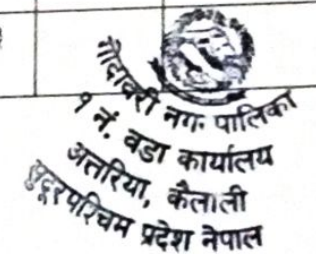 गोदावरी नगर पालिका
१ नं. वडा कार्यालय
अत्तरिया, कैलाली
सुदूरपश्चिम प्रदेश नेपाल